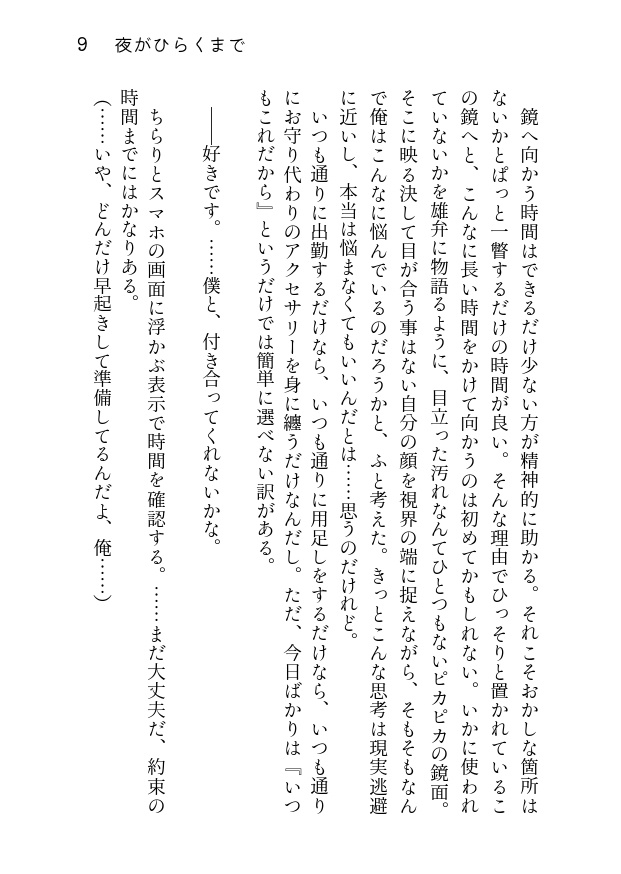 9　夜がひらくまで
　鏡へ向かう時間はできるだけ少ない方が精神的に助かる。それこそおかしな箇所は
ないかとぱっと一瞥するだけの時間が良い。そんな理由でひっそりと置かれているこ
の鏡へと、こんなに長い時間をかけて向かうのは初めてかもしれない。いかに使われ
ていないかを雄弁に物語るように、目立った汚れなんてひとつもないピカピカの鏡面。
そこに映る決して目が合う事はない自分の顔を視界の端に捉えながら、そもそもなん
で俺はこんなに悩んでいるのだろうかと、ふと考えた。きっとこんな思考は現実逃避
に近いし、本当は悩まなくてもいいんだとは……思うのだけれど。
　いつも通りに出勤するだけなら、いつも通りに用足しをするだけなら、いつも通り
にお守り代わりのアクセサリーを身に纏うだけなんだし。ただ、今日ばかりは『いつ
もこれだから』というだけでは簡単に選べない訳がある。
　――好きです。……僕と、付き合ってくれないかな。
　ちらりとスマホの画面に浮かぶ表示で時間を確認する。……まだ大丈夫だ、約束の
時間までにはかなりある。
（……いや、どんだけ早起きして準備してるんだよ、俺……）